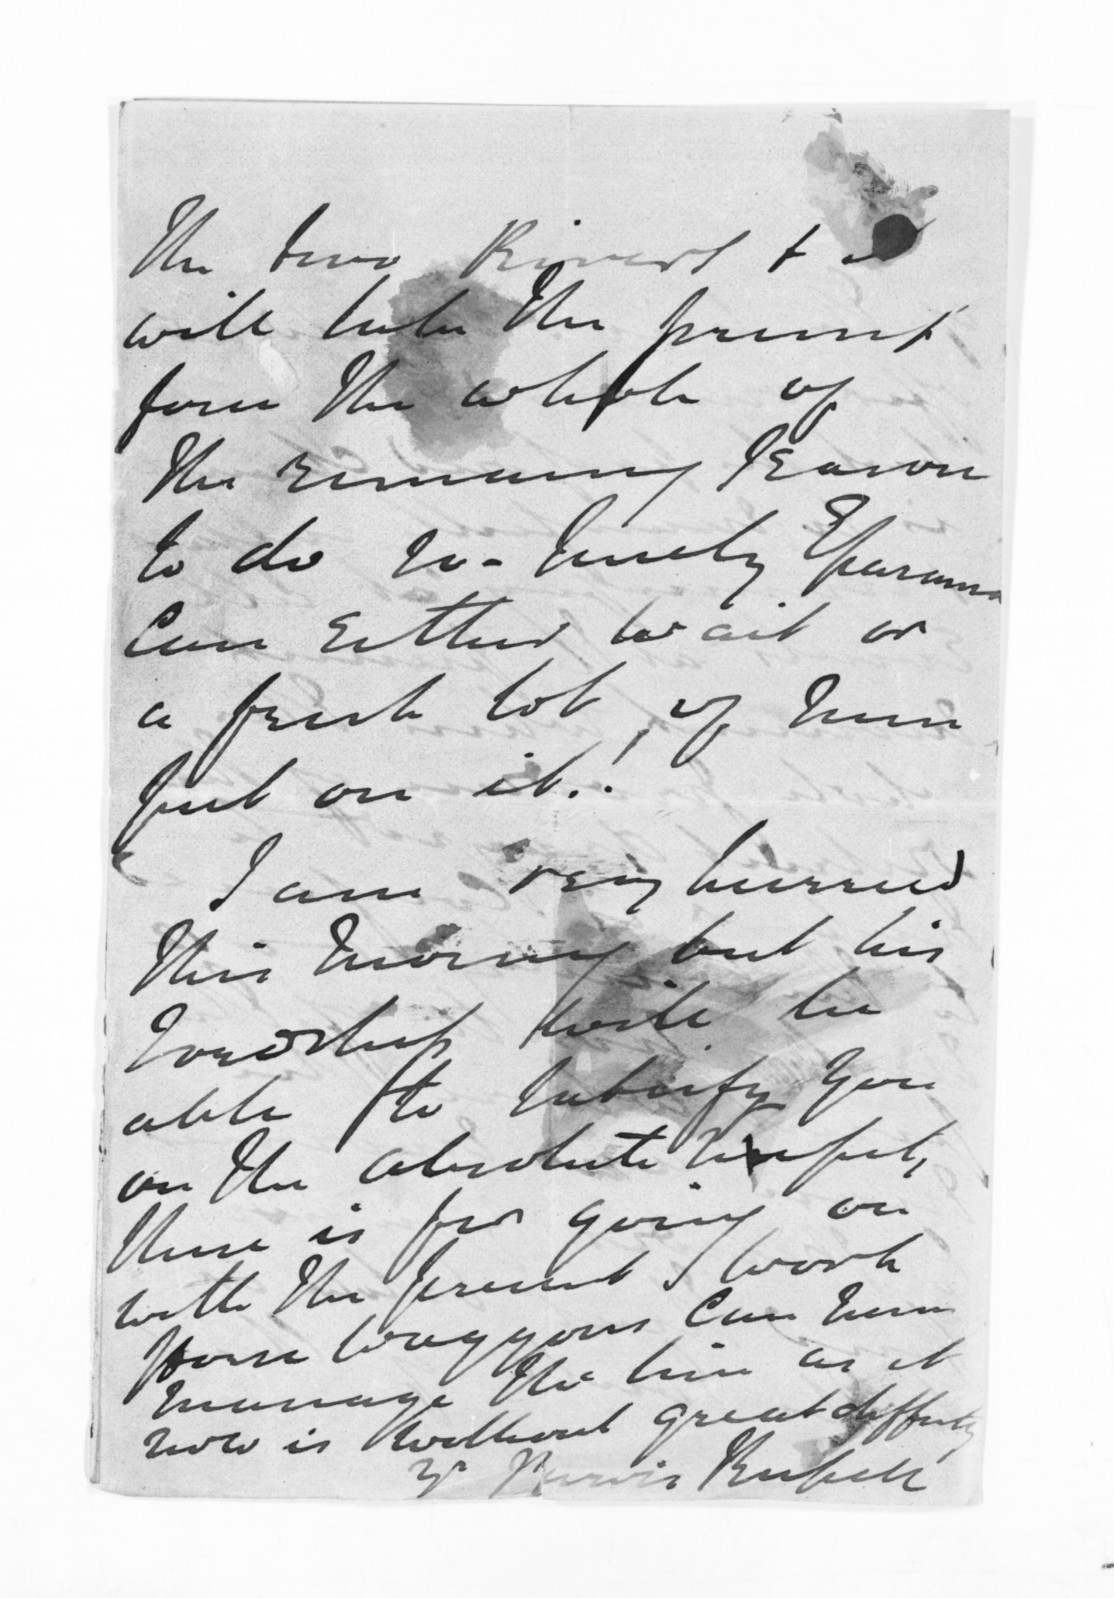 The two Rivers & a
will take the present
force the whole of
the remaining season
to do so - surely Eparaima
can either wait or
a fresh lot of men
put on it.!
I am very hurried
this morning but his
Lordship will be
able to satisfy you
on the absolute
there is for going on
with the present work
Horse waggons can even
manage the line as it
now is without great difficulty
Yr Purvis Russell